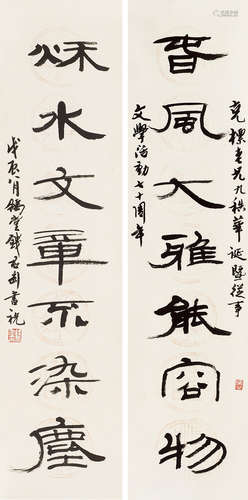 旾風大雅能容物
克標老兄九秩華誕暨從事
文學活動七十周年
秌水文章不染塵
戊辰八月豫堂錢君匋書祝